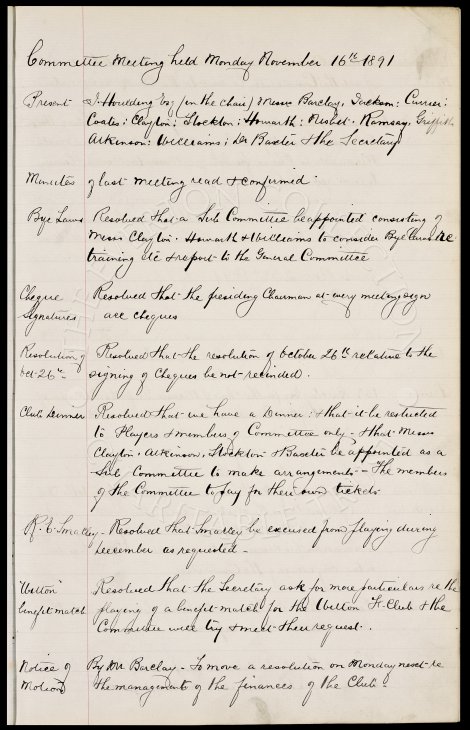 Committee Meeting held Monday November 16th 1891
Present J. Houlding Esq (in the Chair) Messrs Barclay, Jackson: Currier:
Coates: Clayton: Stockton: Howarth: Nisbet. Ramsay, Griffith
Atkinson: Williams: Dr Baxter & the Secretary
Minutes of last meeting read & confirmed
Bye Laws Resolved that a Sub Committee be appointed consisting of
Messrs Clayton. Howarth & Williams to consider Bye Laws re
training etc & report to the General Committee
Cheque Resolved that the presiding Chairman at every meeting sign
Signatures all cheques
Resolution of Resolved that the resolution of October 26th relative to the
Oct 26th signing of Cheques be not recinded.
Club Dinner Resolved that we have a Dinner: & that it be restricted
to Players & members of Committee only - & that Messrs
Clayton. Atkinson, Stockton & Baxter be appointed as a
Sub Committee to make arrangements - The members
of the Committee to pay for their own tickets
R. C Smalley - Resolved that Smalley be excused from playing during
December as requested -
"Witton" Resolved that the Secretary ask for more particulars re the
benefit match playing of a benefit match for the Witton F. Club & the
Committee will try & meet their request.
Notice of By Mr Barclay - To move a resolution on Monday next re
Motion the management of the finances of the Club -